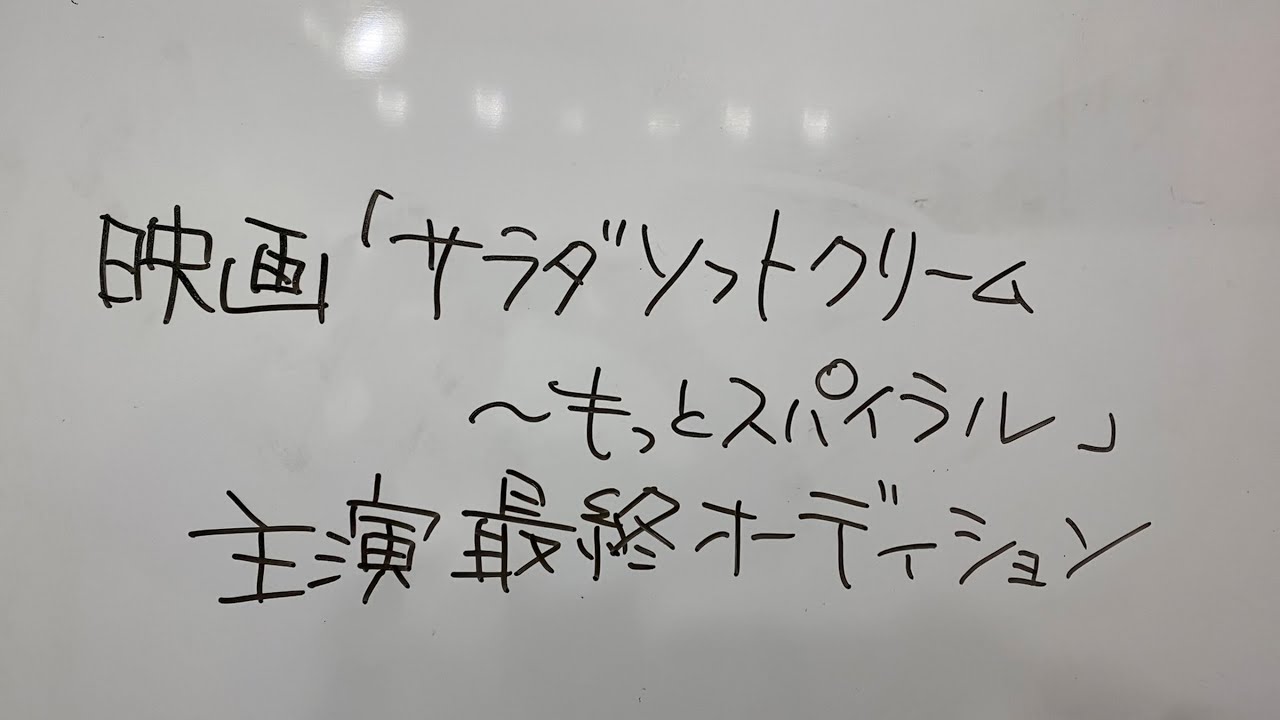 映画「サラダソフトクリーム
～もっとスパイラル」
主演最終オーディション